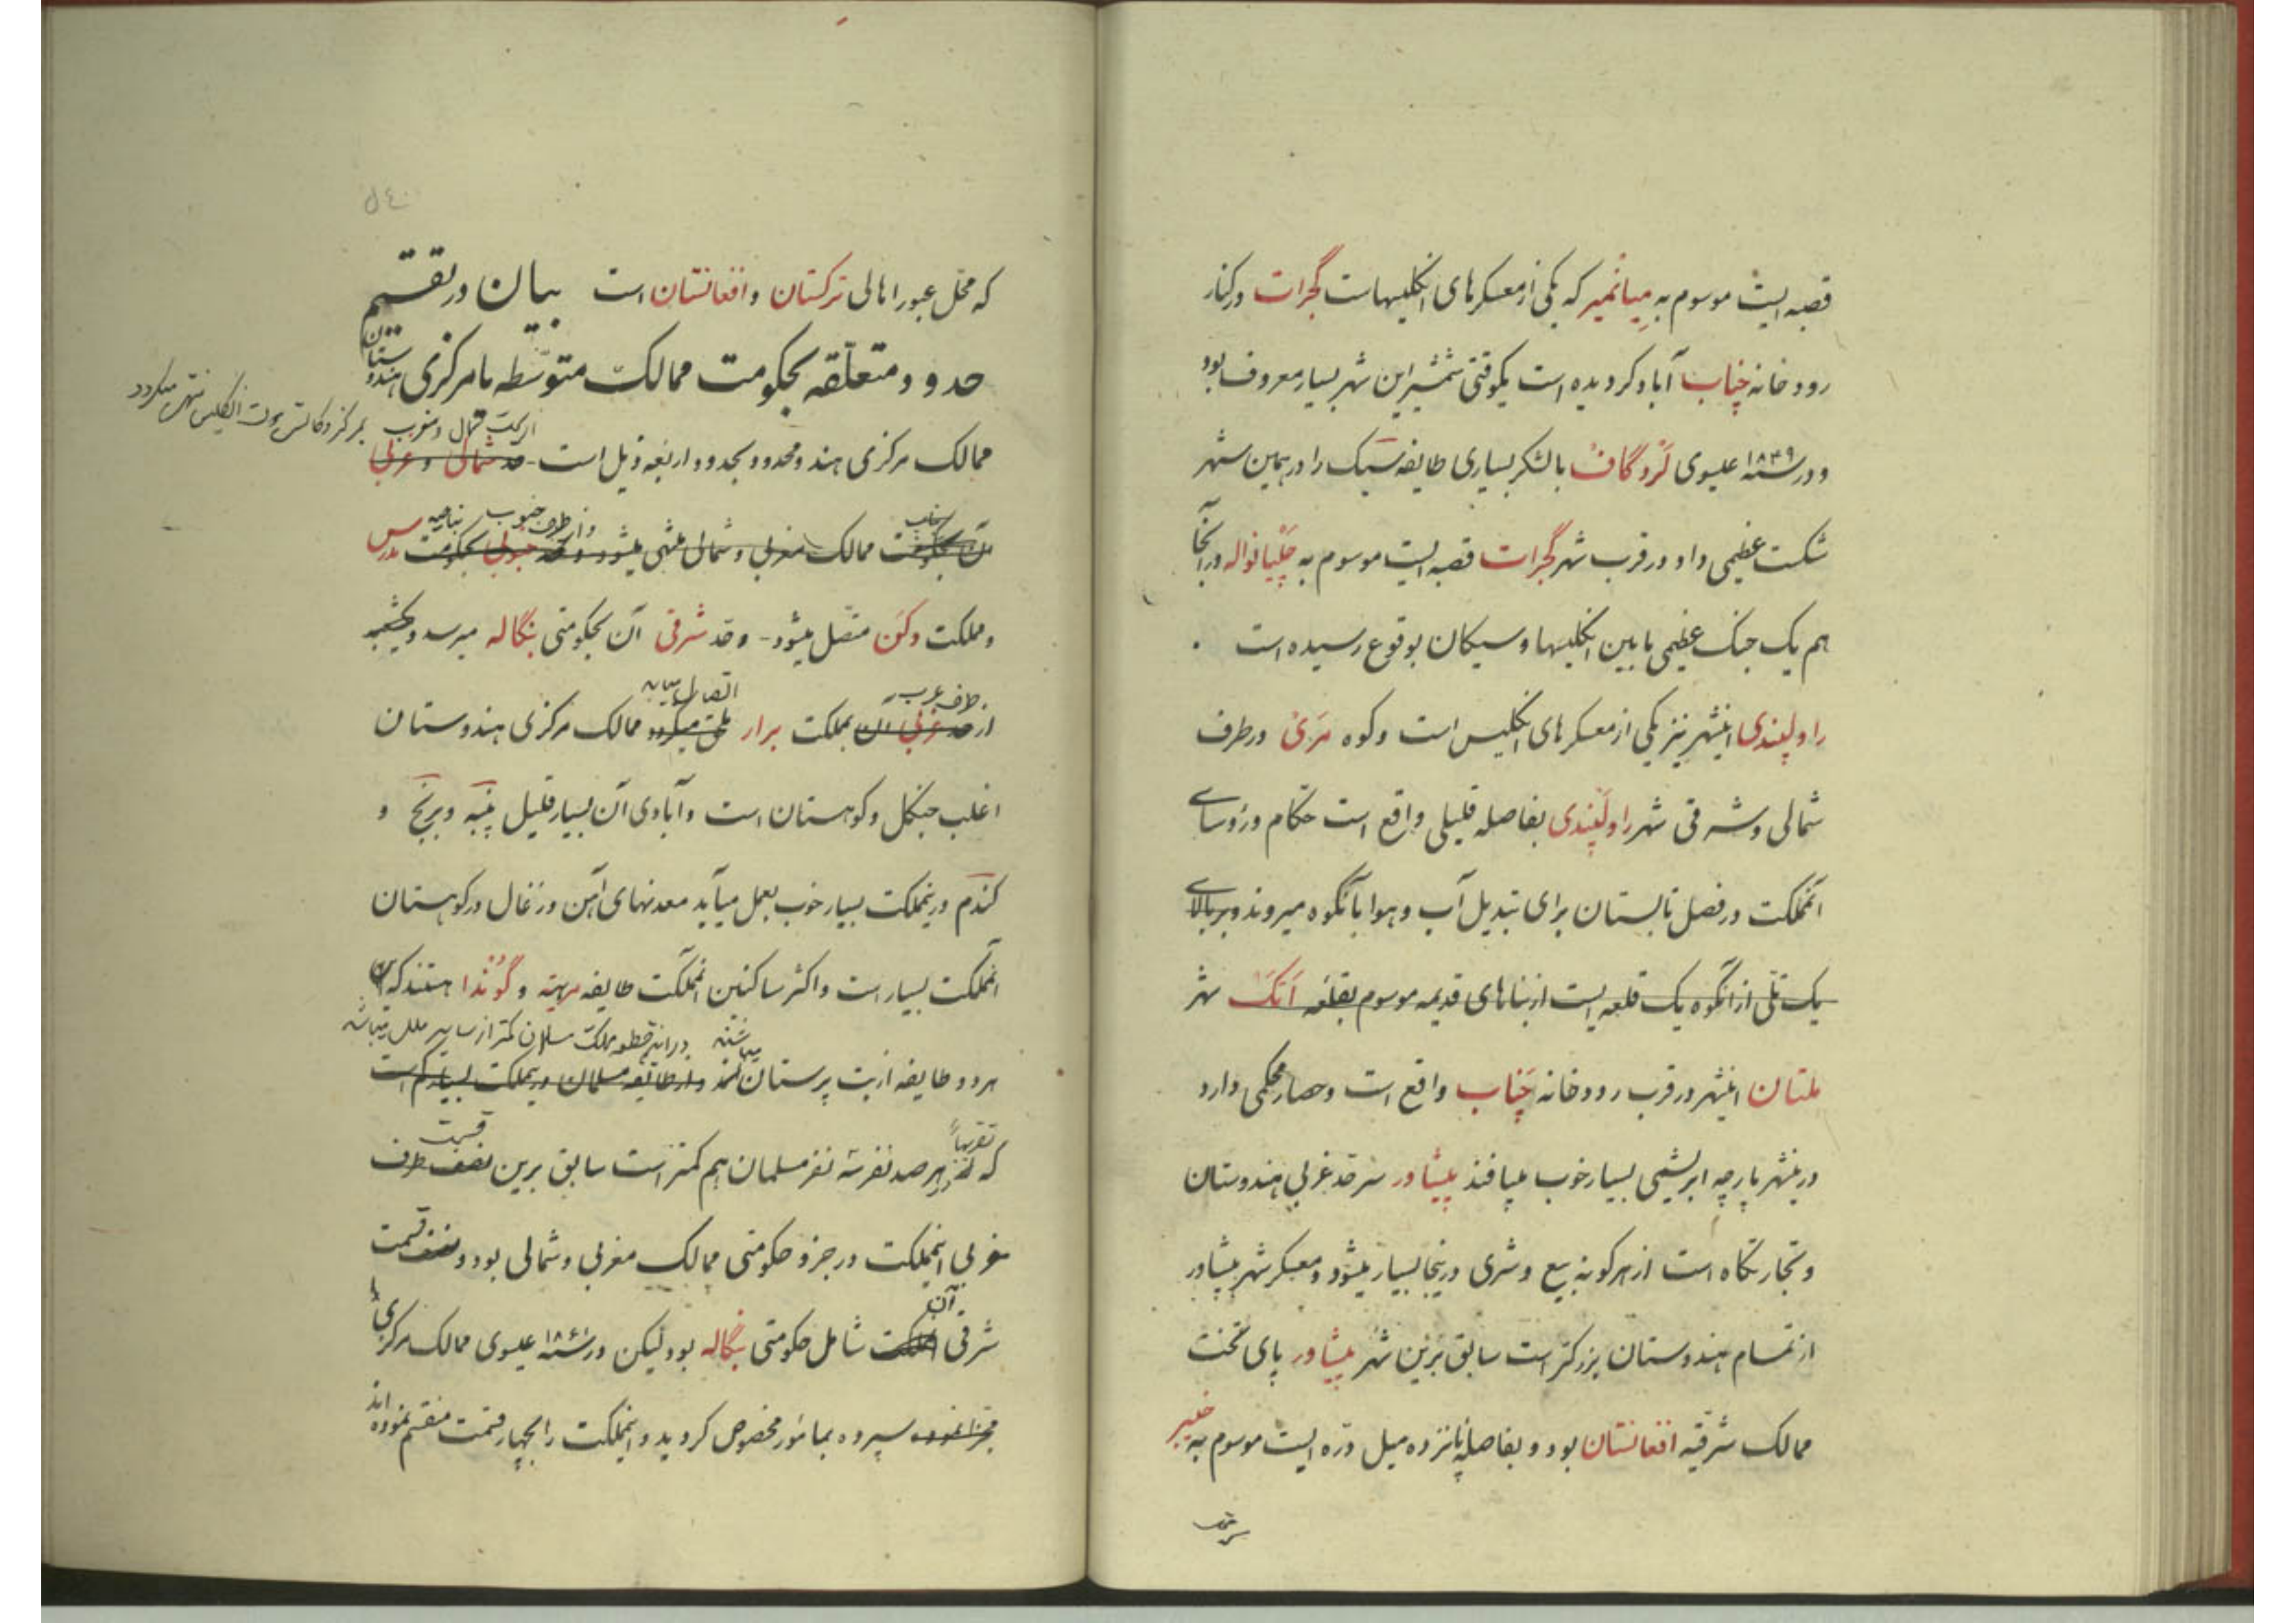 قصبه ایست موسوم به میانمیر که یکی از معسکرهای انگلیسهاست گجرات در کنار
رودخانه چناب آباد گردیده است یکوقتی شمشیر این شهر بسیار معروف بود
و در سنه ۱۸۴۹ عیسوی لرد گاف با لشکر بسیاری طایفه سیک را در همین شهر
شکست عظیمی داد و در قرب شهر گجرات قصبه ایست موسوم به چلیانواله و در آنجا
هم یک جنگ عظیمی مابین انگلیسها و سیکان بوقوع رسیده است
راولپندی اینشهر نیز یکی از معسکرهای انگلیس است و کوه مری در طرف
شمالی و شرقی شهر راولپندی بفاصله قلیلی واقع است حکام و رؤسای
آنمملکت در فصل تابستان برای تبدیل آب و هوا بآنکوه میروند و بر بالای
یک تلی از آنکوه یک قلعه ایست از بناهای قدیمه موسوم بقلعه اتک شهر
ملتان اینشهر در قرب رودخانه چناب واقع است و حصار محکمی دارد
درینشهر پارچه ابریشمی بسیار خوب میبافند پیشاور سرحد غربی هندوستان
و تجارتگاه است از هر گونه بیع و شری درینجا بسیار میشود و معسکر شهر پیشاور
از تمام هندوستان بزرگتر است سابق برین شهر پیشاور پای تخت
ممالک شرقیه افغانستان بود و بفاصله پانزده میل دره ایست موسوم به خیبر
که محل عبور اهالی ترکستان و افغانستان است بیان در تقسیم
حدود متعلقه بحکومت ممالک متوسطه یا مرکزی هندوستان
از سمت شمال و مغرب بمرکز
ممالک مرکزی هند محدود بحدود اربعه ذیل است - حد شمالی و غربی
و از طرف جنوب بناحیه
آن بحکومت ممالک مغربی و شمالی منتهی میشود و حد جنوبی بحکومت مدرس
و مملکت دکن متصل میشود - و حد شرقی آن بحکومتی بنگاله میرسد و
طرف غرب اتصال مییابد
از حد غربی آن بمملکت برار ملحق میگردد ممالک مرکزی هندوستان
اغلب جنگل و کوهستان است و آبادی آن بسیار قلیل پنبه و برنج و
گندم درینمملکت بسیار خوب بعمل میآید معدنهای آهن و زغال در کوهستان
آنمملکت بسیار است و اکثر ساکنین آنمملکت طایفه مرهته و گوندا هستند که این
میباشند در این قطعه مملکت مسلمان کمتر از سایر ملل میباشد
هر دو طایفه از بت پرستان‌اند و از طایفه مسلمان درینمملکت بسیار کم است
تقریباً قسمت
که در هر صد نفر سه نفر مسلمان هم کمتر است سابق برین نصف طرف
غربی اینمملکت در جزو حکومتی ممالک مغربی و شمالی بود و نصف قسمت
آن
شرقی آنمملکت شامل حکومتی بنگاله بود لیکن در سنه ۱۸۶۱ عیسوی ممالک مرکزی را
مجزا نموده سپرده بمامور مخصوص گردید و اینمملکت را بچهار قسمت منقسم نموده‌اند